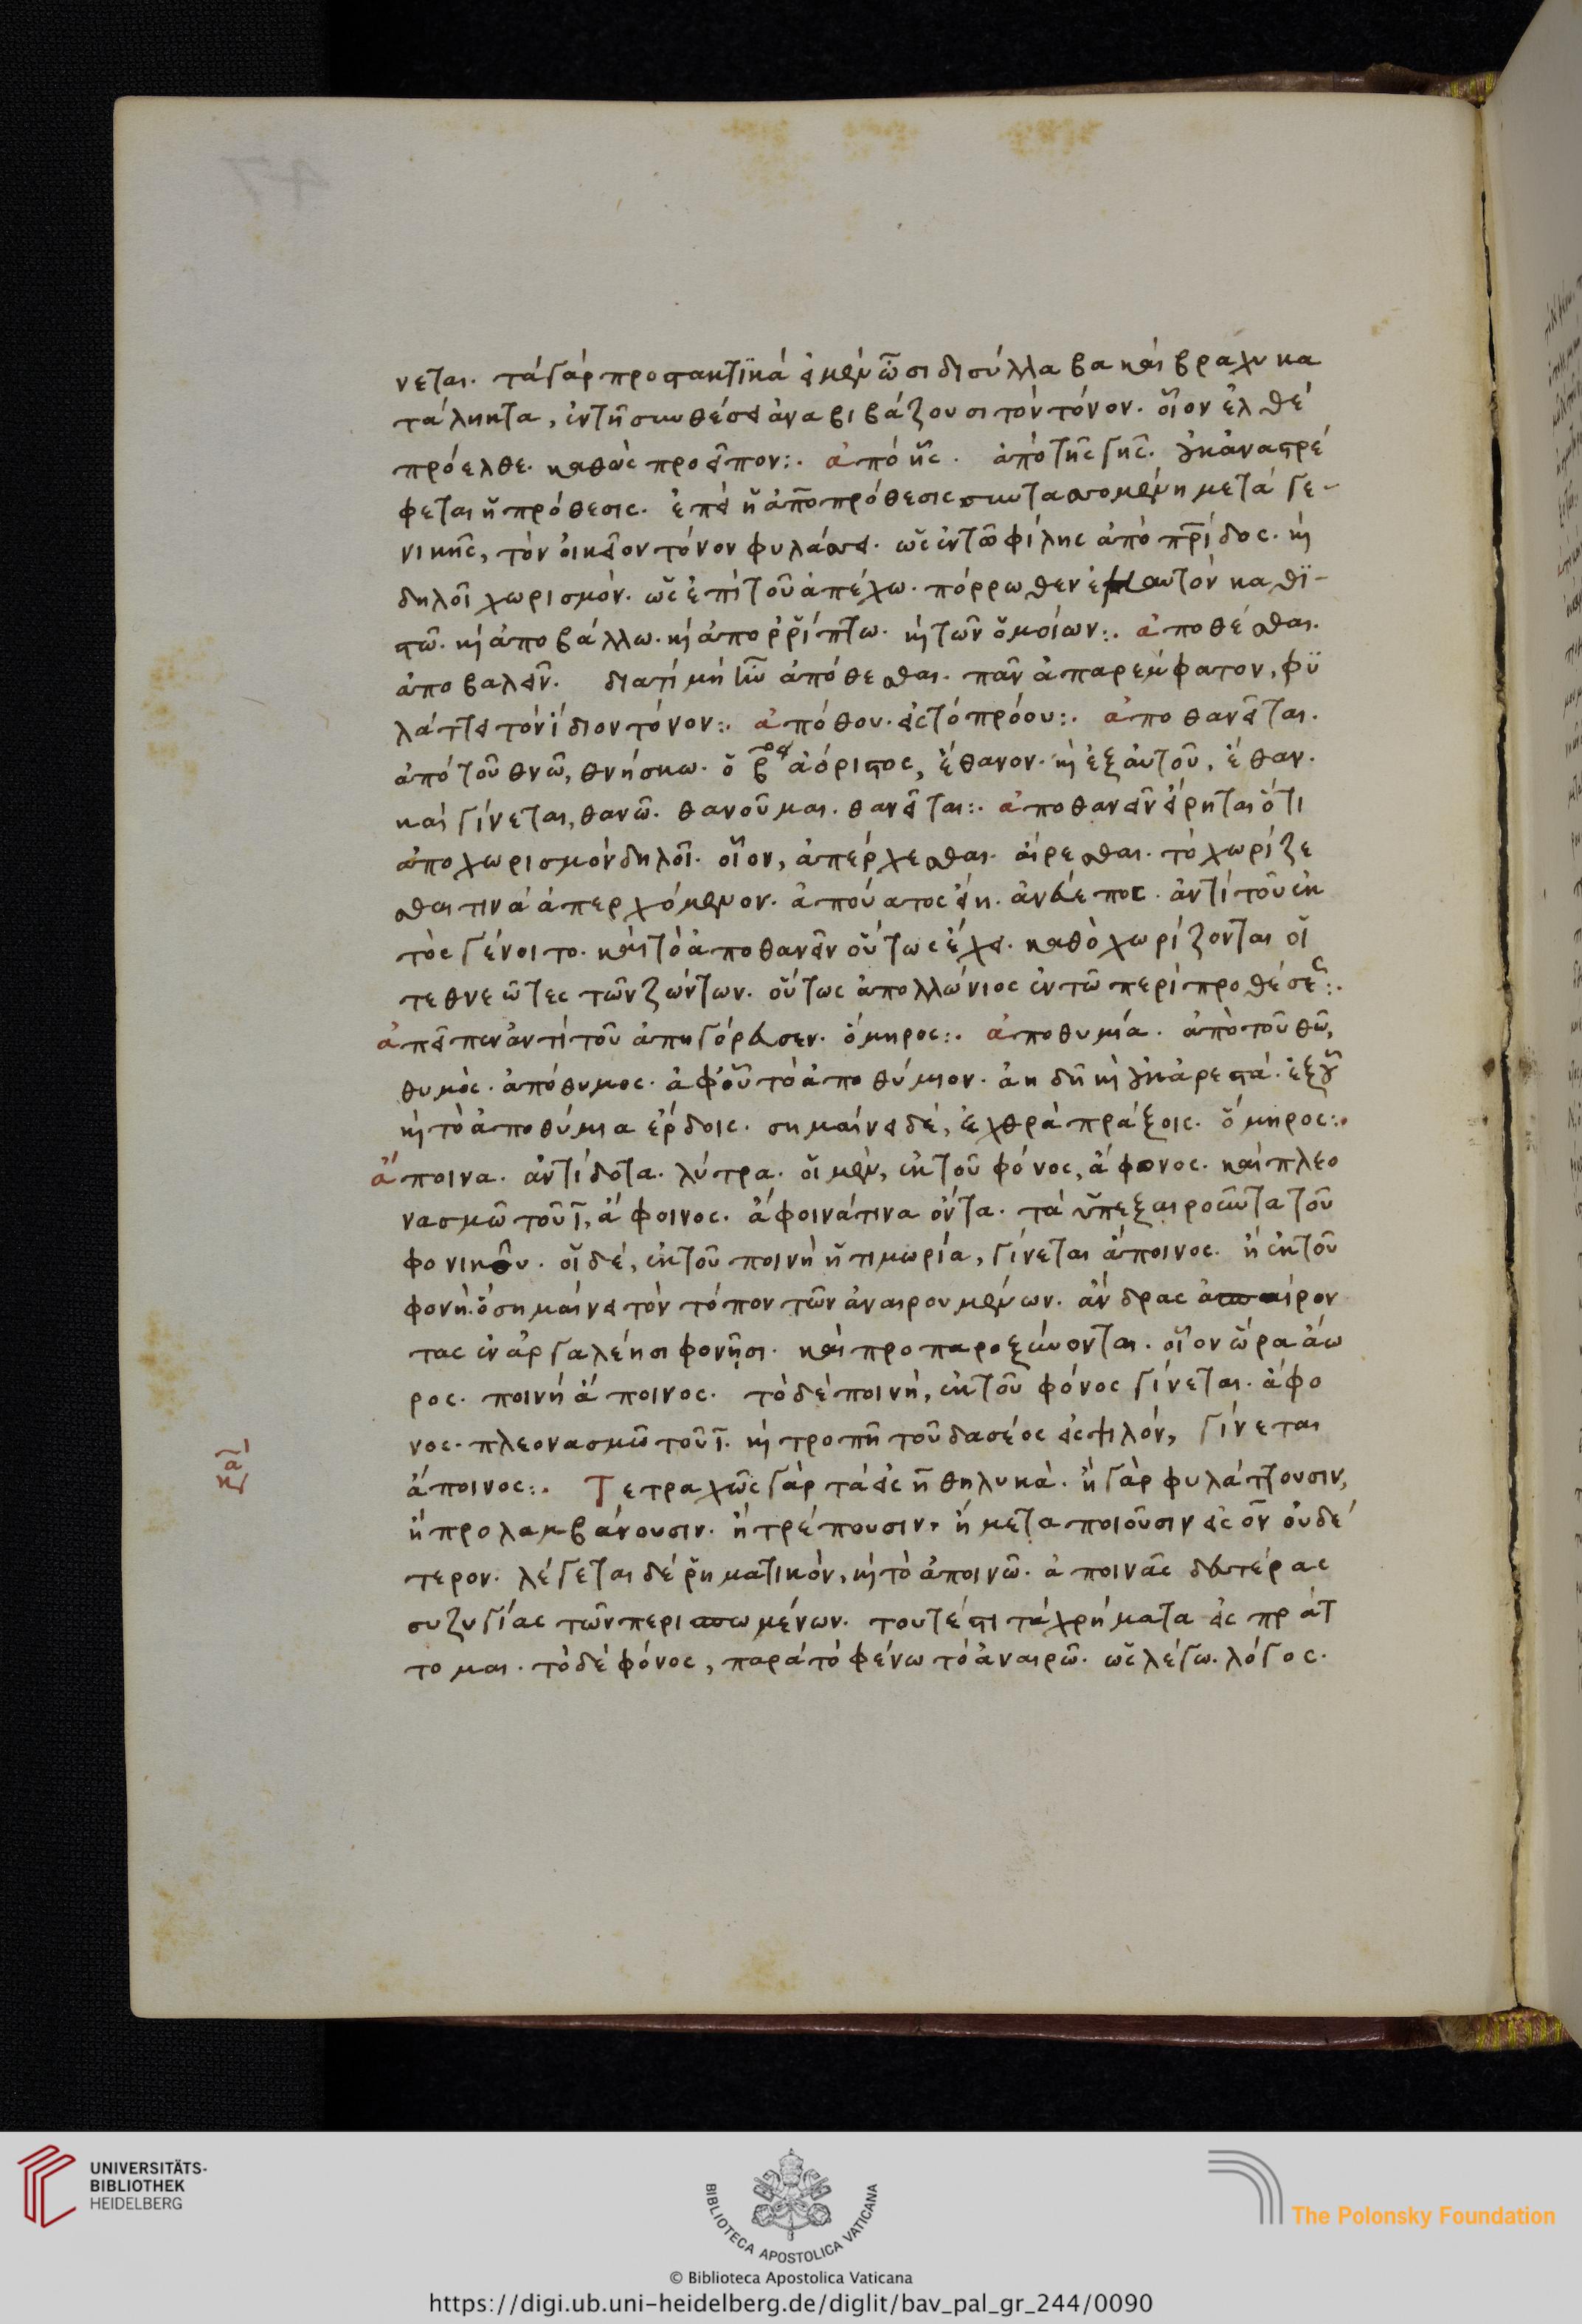 νεται. τὰ γὰρ προστακτικὰ εἰ μὲν ὦσι δισύλλαβα καὶ βραχυκα
τάληκτα, ἐν τῇ συνθέσει ἀναβιβάζουσι τὸν τόνον. οἷον ἐλθέ
πρόελθε. καθὼς προεῖπον:. ἀπὸ ἧς. ἀπὸ τῆς γῆς. οὐκ ἀναστρέ
φεται ἡ πρόθεσις. ἐπεὶ ἡ ἀπο πρόθεσις συντασσομένη μετὰ γε-
νικῆς, τὸν οἰκεῖον τόνον φυλάσσει. ὡς ἐν τῶ φίλης ἀπὸ πρίδος. κὴ
δηλοῖ χωρισμόν. ὡς ἐπὶ τοῦ ἀπέχω. πόρρωθεν ἐμαυτὸν καθϊ-
στῶ. κὴ ἀποβάλλω. κὴ ἀπορρίπτω. κὴ τῶν ὁμοίων:. ἀποθέσθαι.
ἀποβαλεῖν. διατί μὴ ἀπόθεσθαι. πᾶν ἀπαρέμφατον, φυ
λάττει τὸν ἴδιον τόνον:. ἀπόθου. εἰς τὸ πρόου:. ἀποθανεῖται.
ἀπὸ τοῦ θνῶ, θνήσκω. ὁ β ἀόριστος, ἔθανον. κὴ ἐξ αὐτοῦ, ἔθαν.
καὶ γίνεται, θανῶ. θανοῦμαι. θανεῖται:. ἀποθανεῖν εἴρηται ὅτι
ἀποχωρισμὸν δηλοῖ. οἷον, ἀπέρχεσθαι. αἴρεσθαι. τὸ χωρίζε
σθαι τινὰ ἀπερχόμενον. ἀπούατος εἴη. ἀνεὺ ἔπος. ἀντὶ τοῦ ἐκ
τὸς γένοιτο. καὶ τὸ ἀποθανεῖν οὕτως ἔχει. καθὸ χωρίζονται οἱ
τεθνεῶτες τῶν ζώντων. οὕτως ἀπολλώνιος ἐν τῶ περὶ προθέσε:.
ἀπεῖπεν ἀντὶ τοῦ ἀπηγόρευσεν. ὅμηρος:. ἀποθυμία. ἀπὸ τοῦ θῶ,
θυμὸς. ἀπόθυμος. ἀφ' οὗ τὸ ἀποθύμιον. ἀηδῆ κὴ οὐκ ἀρεστά. ἐξ οὗ
κὴ τὸ ἀποθύμια ἔρδοις. σημαίνει δὲ, ἐχθρὰ πράξοις. ὅμηρος:.
ἄποινα. ἀντίδοτα. λύτρα. οἱ μὲν, ἐκ τοῦ φόνος, ἄφονος. καὶ πλεο
νασμῶ τοῦ ι, ἄφοινος. ἄφοινά τινα ὄντα. τὰ ὑπεξαιροῦντα τοῦ
φονικοῦ. οἱ δὲ, ἐκ τοῦ ποινὴ ἡ τιμωρία, γίνεται ἄποινος. ἢ ἐκ τοῦ
φονή. ὃ σημαίνει τὸν τόπον τῶν ἀναιρουμένων. ἄνδρας ἀσπαίρον
τας ἐν ἀργαλέησι φονῇσι. καὶ προπαροξύνονται. οἷον ὥρα ἄω
ρος. ποινὴ ἄποινος. τὸ δὲ ποινὴ, ἐκ τοῦ φόνος γίνεται. ἄφο
νος. πλεονασμῶ τοῦ ι. κὴ τροπῆ τοῦ δασέος εἰς ψιλόν, γίνεται
ἄποινος:. Τετραχῶς γὰρ τὰ εἰς η θηλυκὰ. ἢ γὰρ φυλάττουσιν,
ἢ προλαμβάνουσιν. ἢ τρέπουσιν, ἢ μεταποιοῦσιν εἰς ον οὐδέ
τερον. λέγεται δὲ ῥηματικὸν, κὴ τὸ ἀποινῶ. ἀποινᾶς δευτέρας
συζυγίας τῶν περισπωμένων. τουτέστι τὰ χρήματα εἰς πράτ
τομαι. τὸ δὲ φόνος, παρὰ τὸ φένω τὸ ἀναιρῶ. ὡς λέγω. λόγος.
UNIVERSITÄTS-
BIBLIOTHEK
HEIDELBERG
BIBLIOTECA APOSTOLICA VATICANA
The Polonsky Foundation
© Biblioteca Apostolica Vaticana
https://digi.ub.uni-heidelberg.de/diglit/bav_pal_gr_244/0090